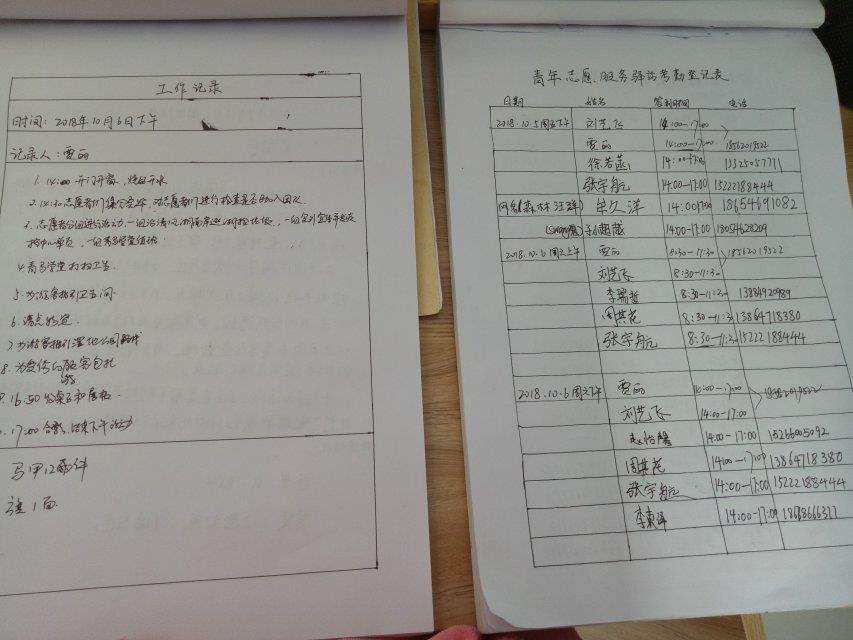 工作记录
时间：2018年10月6日下午
记录人：贾丽
1. 14:00 开门开窗，烧开水
2. 14:20 志愿者们集合完毕，对志愿者们进行检查是否加入团队
3. 志愿者分组进行活动，一组沿
4. 打扫卫生.
5. 为游客指引卫生间
6. 清点物定.
7. 为游客指引湿地公园路线
8. 为受伤的游客包扎
9. 16:50 公桌子和座椅.
17:00 合影，结束下午活动
马甲12件
旗1面
青年志愿服务驿站考勤登记表
日期 姓名 签到时间 电话
2018.10.5周五下午 刘艺飞 14:00-17:00
贾丽 14:00-17:00 18562019522
徐若菡 14:00-17:00 13325057771
张宇航 14:00-17:00 15222188444
网名(森林汪洋) 牟久洋 14:00-17:00 18654691082
14:00-17:00 18054628209
2018.10.6周六上午 贾丽 8:30-11:30 18562019522
刘艺飞 8:30-11:30
李瑞哲 8:30-11:30 13884920989
周其花 8:30-11:30 13864718380
张宇航 8:30-11:30 15222188444
2018.10.6周六下午 贾丽 14:00-17:00 18562019522
刘艺飞 14:00-17:00
赵怡馨 14:00-17:00 15266005092
周其花 14:00-17:00 13864718380
张宇航 14:00-17:00 15222188444
李東泽 14:00-17:00